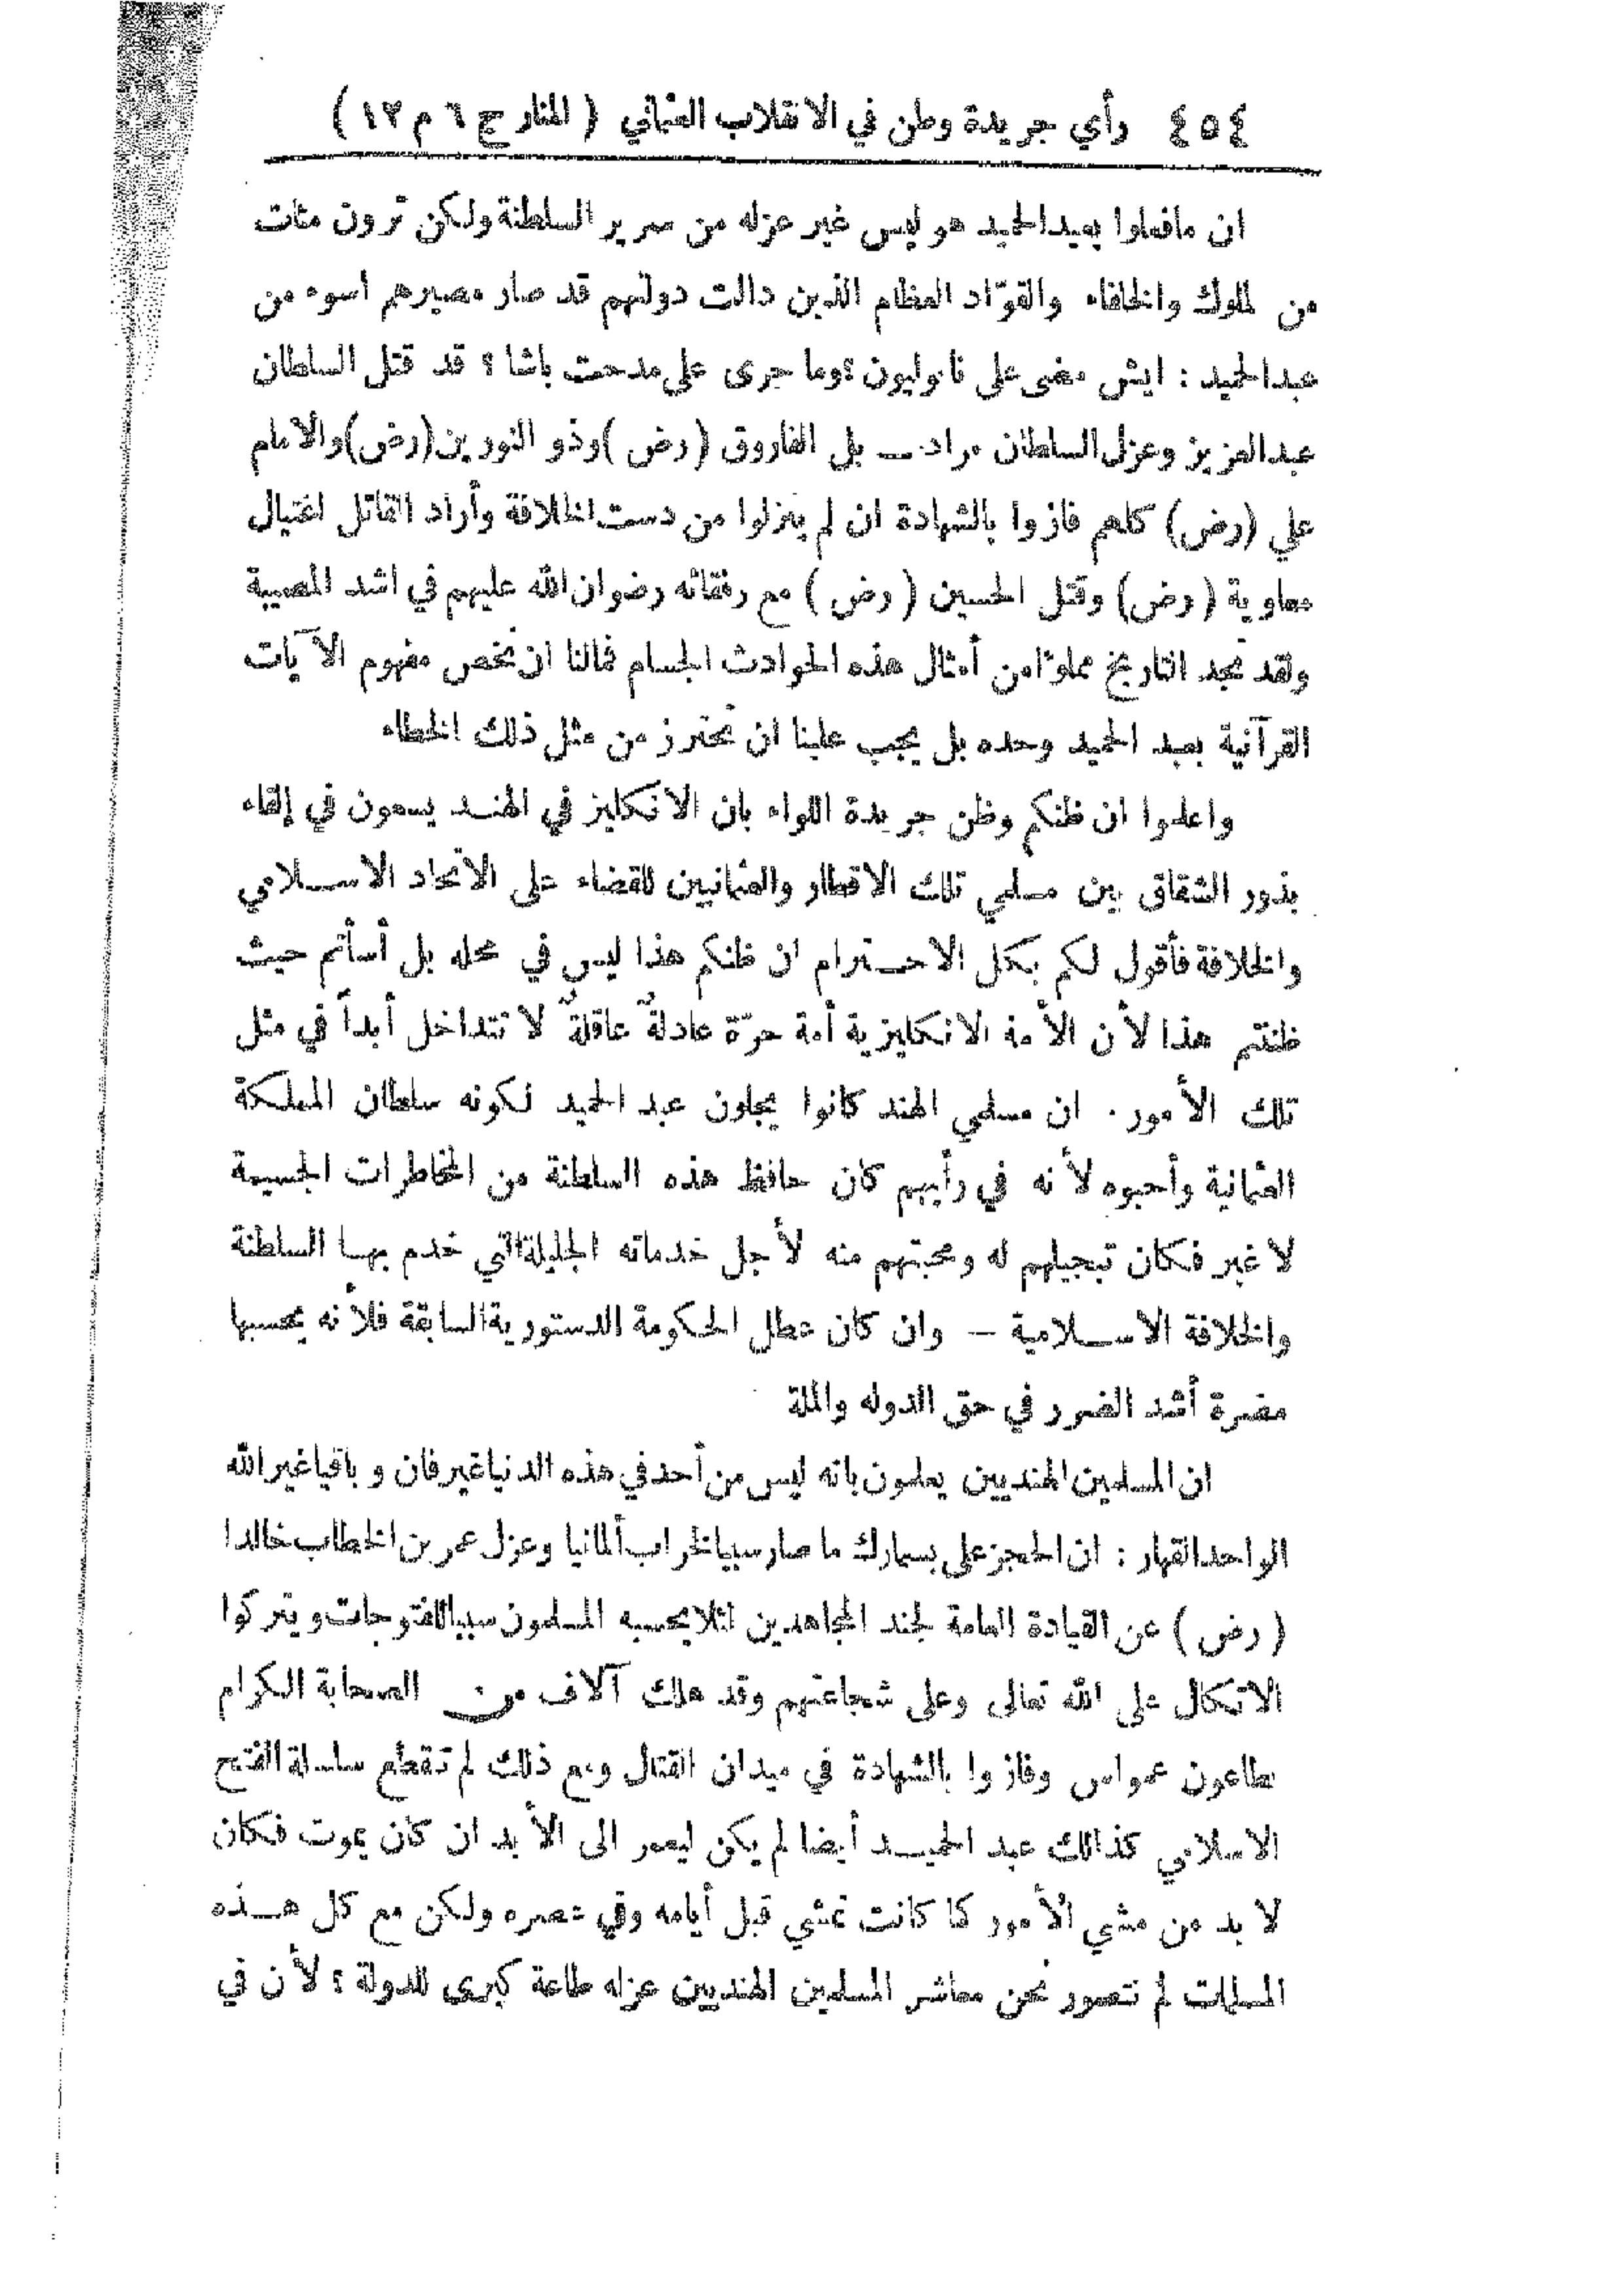 ٤٥٤ رأي جريدة وطن في الانقلاب العثماني ( المنار ج ٦ م ١٢ )
ان مافعلوا بعبدالحميد هو ليس غير عزله من سرير السلطنة ولكن ترون مئات
من لملوك والخلفاء والقوّاد العظام الذين دالت دولتهم قد صار مصيرهم اسوء من
عبدالحميد : ايش مضى على نابوليون ؟ وما جرى على مدحت باشا ؟ قد قتل السلطان
عبدالعزيز وعزل السلطان مراد ــ بل الفاروق ( رض ) وذو النورين (رض) والامام
علي (رض) كلهم فازوا بالشهادة ان لم ينزلوا من دست الخلافة وأراد القاتل اغتيال
معاوية ( رض) وقتل الحسين ( رض ) مع رفقائه رضوان الله عليهم في اشد المصيبة
ولقد نجد التاريخ مملوًّا من أمثال هذه الحوادث الجسام فمالنا ان نخص مفهوم الآيات
القرآنية بعبد الحميد وحده بل يجب علينا ان نحترز من مثل ذلك الخطاء
واعلموا ان ظنكم وظن جريدة اللواء بان الانكليز في الهند يسعون في إلقاء
بذور الشقاق بين مسلمي تلك الاقطار والعثمانيين للقضاء على الاتحاد الاسلامي
والخلافة فأقول لكم بكل الاحترام ان ظنكم هذا ليس في محله بل أسأتم حيث
ظننتم هذا لأن الأمة الانكليزية أمة حرّة عادلةٌ عاقلةٌ لا تتداخل أبداً في مثل
تلك الأمور . ان مسلمي الهند كانوا يجلون عبد الحميد لكونه سلطان المملكة
العثمانية وأحبوه لأنه في رأيهم كان حافظ هذه السلطنة من المخاطرات الجسيمة
لا غير فكان تبجيلهم له ومحبتهم منه لأجل خدماته الجليلة التي خدم بها السلطنة
والخلافة الاسلامية – وان كان عطل الحكومة الدستورية السابقة فلأنه يحسبها
مضرة أشد الضرر في حق الدوله والملة
ان المسلمين الهنديين يعلمون بانه ليس من أحد في هذه الدنيا غير فان و باقيا غير الله
الواحد القهار : ان الحجز على بسمارك ما صار سببا لخراب ألمانيا وعزل عمر بن الخطاب خالدا
( رض ) عن القيادة العامة لجند المجاهدين لئلا يحسبه المسلمون سببا للفتوحات ويتركوا
الاتكال على الله تعالى وعلى شجاعتهم وقد هلك آلاف من الصحابة الكرام
بطاعون عمواس وفازوا بالشهادة في ميدان القتال ومع ذلك لم تقطع سلسلة الفتح
الاسلامي كذالك عبد الحميد أيضا لم يكن ليعمر الى الأبد ان كان يموت فكان
لا بد من مشي الأمور كما كانت تمشي قبل أيامه وفي عصره ولكن مع كل هذه
المسلمات لم نتصور نحن معاشر المسلمين الهنديين عزله طاعة كبرى للدولة ؟ لأن في